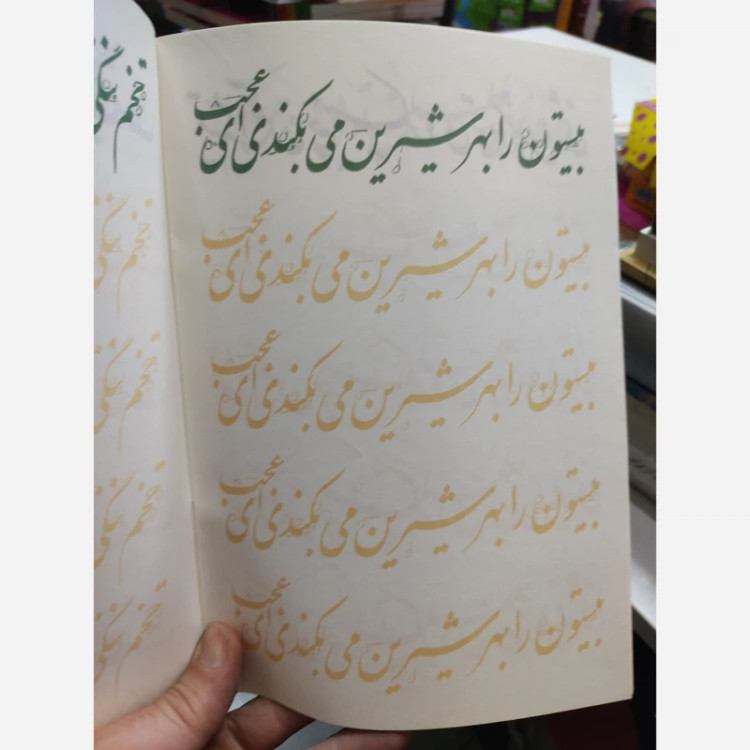 بیستون را بهر شیرین می بکندی ای عجب
بیستون را بهر شیرین می بکندی ای عجب
بیستون را بهر شیرین می بکندی ای عجب
بیستون را بهر شیرین می بکندی ای عجب
بیستون را بهر شیرین می بکندی ای عجب